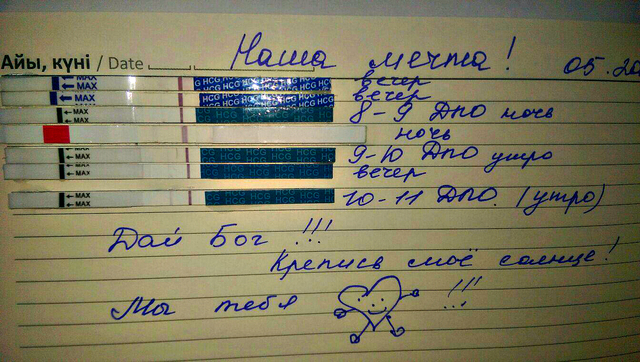 Айы, күні / Date Наша мечта! 05.20
← MAX HCG HCG HCG вечер
← MAX HCG HCG HCG вечер
← MAX 8-9 ДПО ночь
ночь
← MAX HCG HCG HCG 9-10 ДПО утро
← MAX HCG HCG HCG вечер
← MAX HCG HCG HCG 10-11 ДПО. (утро)
Дай Бог !!!
Крепись моё солнце!
Мы тебя !!!